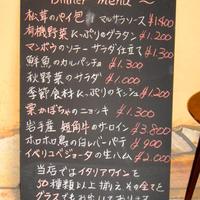 Dinner menu 〜
松茸のパイ包 マルサラソース ¥1.400
有機野菜たっぷりのグラタン ¥1.200
マンボウのソテー サラダ仕立て ¥1.300
鮮魚のカルパッチョ ¥1.300
秋野菜のサラダ ¥1.000
季節食材たっぷりのキッシュ ¥1.200
栗かぼちゃのニョッキ ¥1.300
岩手産 短角牛のサーロイン ¥3.800
ホロホロ鳥の白レバーパテ ¥900
イベリコベジョータの生ハム ¥2.000
当店ではイタリアワインを
50種類以上揃えその全てを
グラスでも